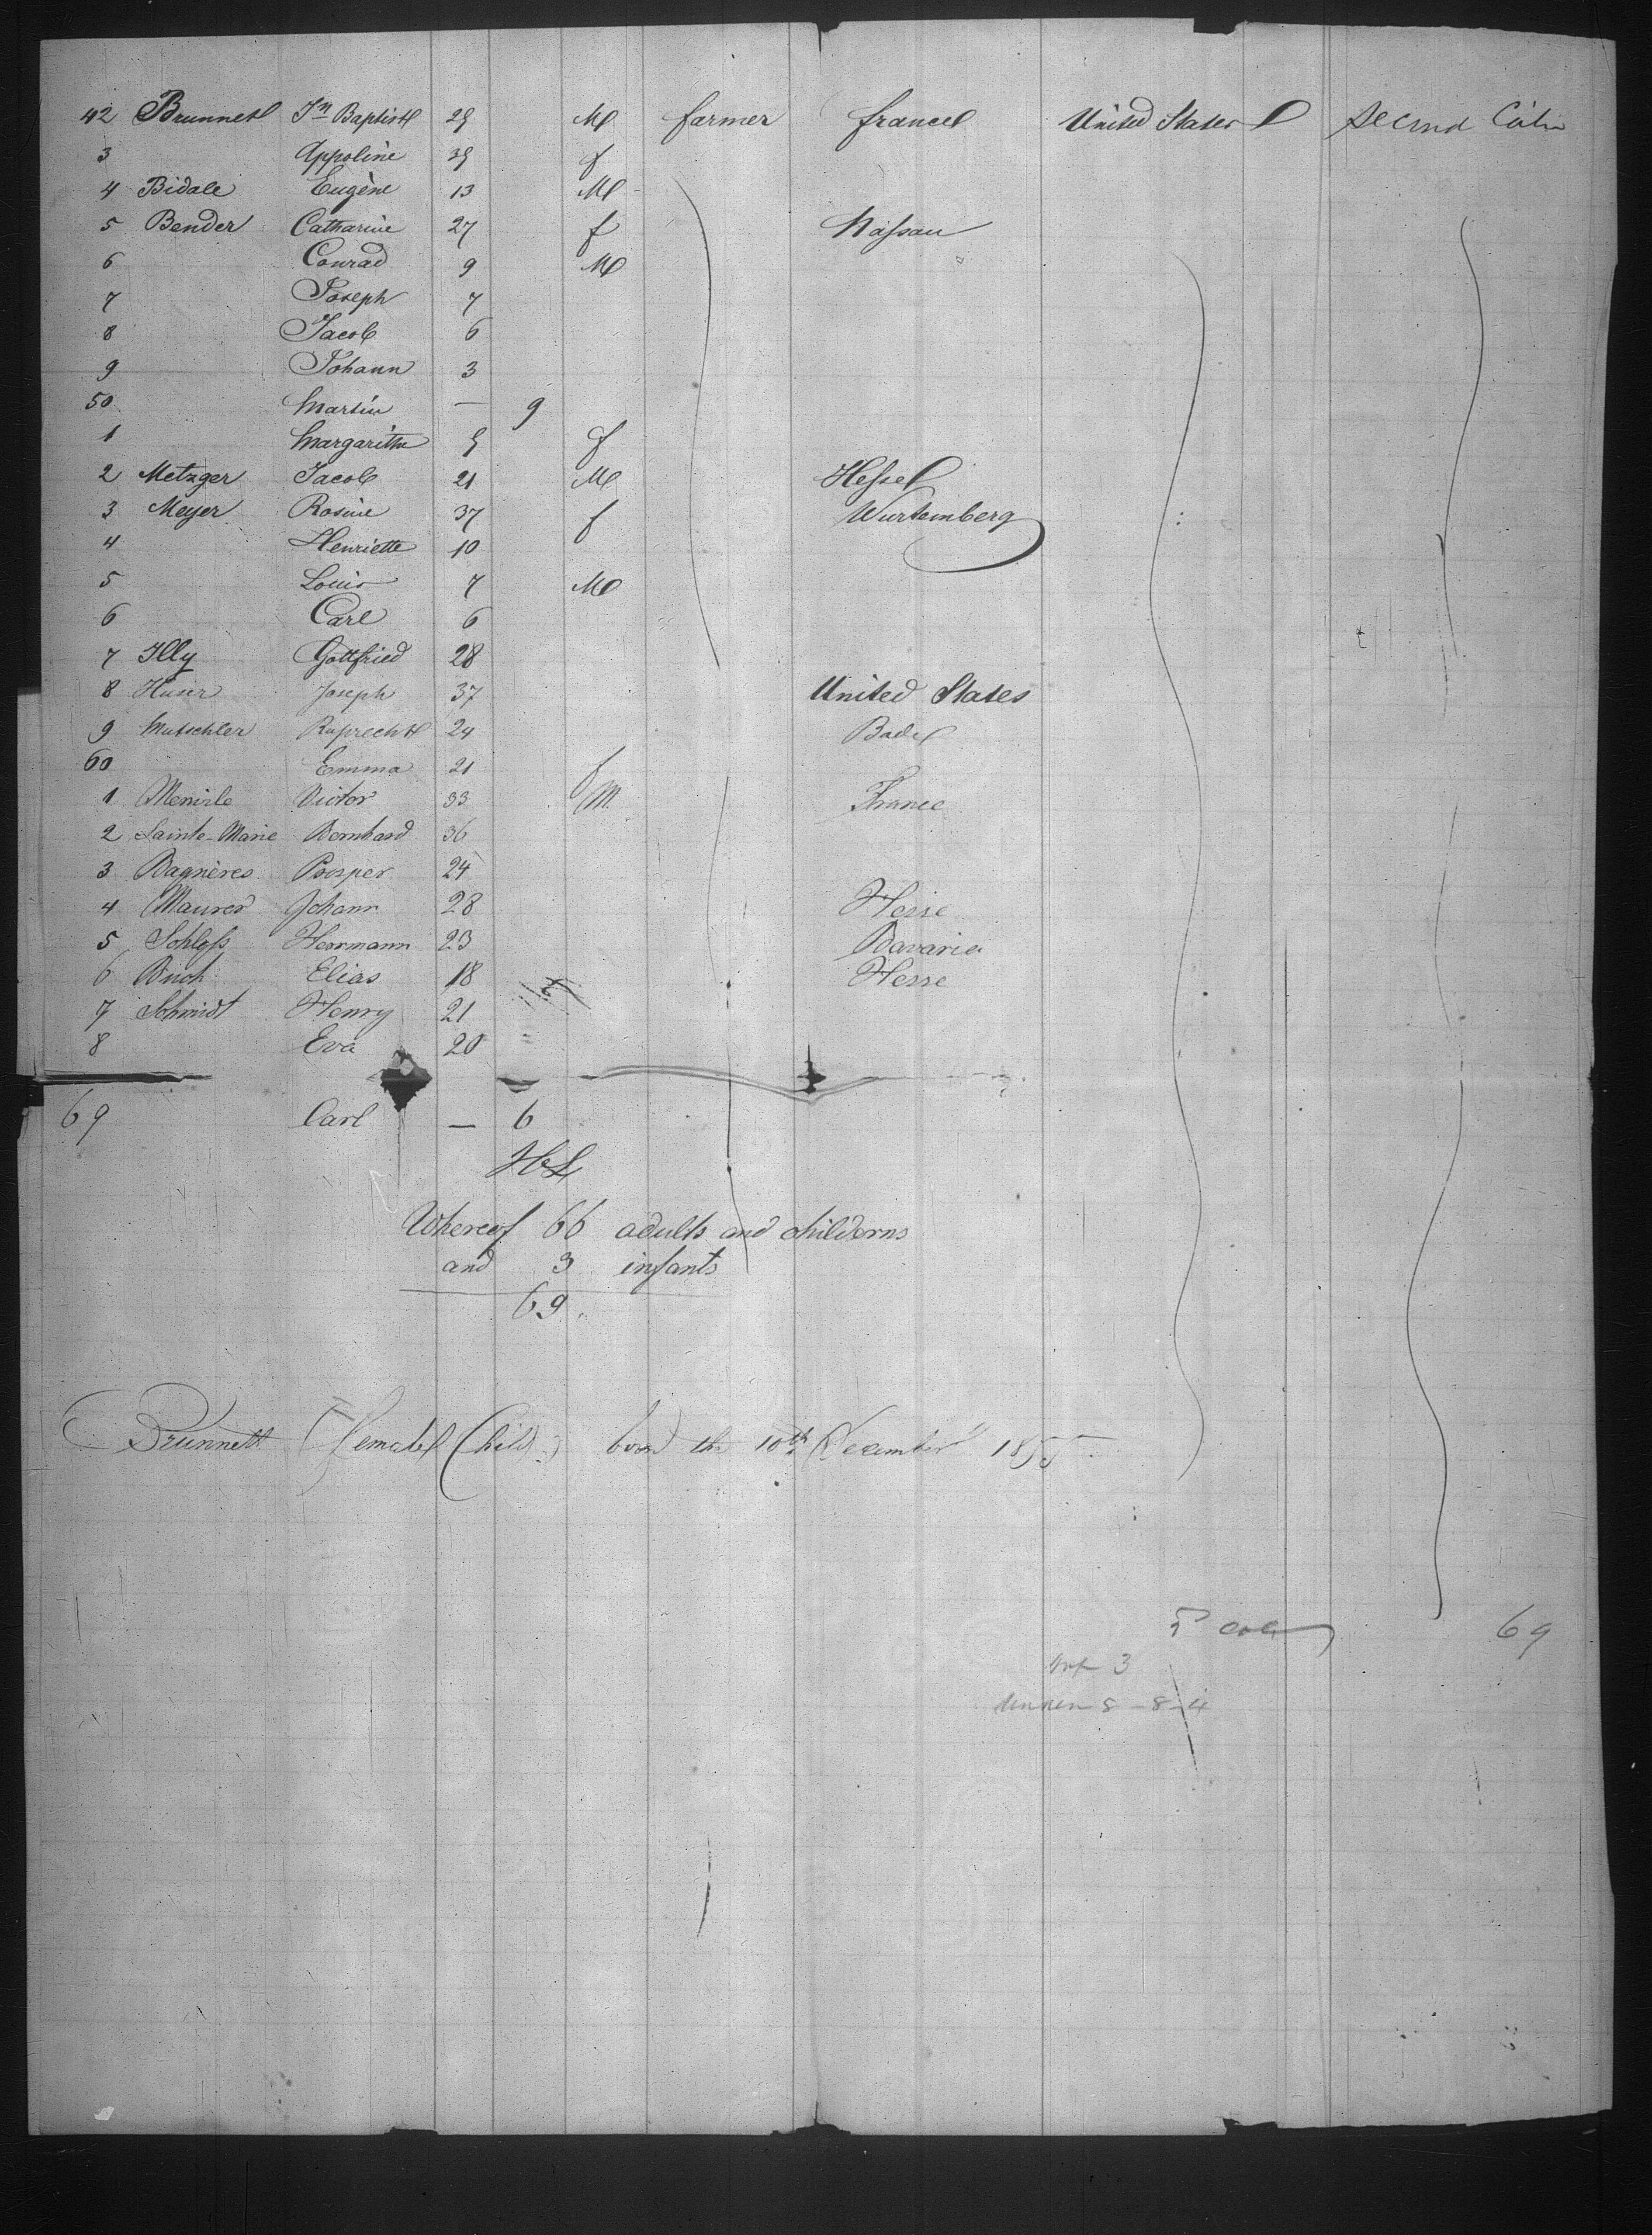 42 Brunnet Jn Baptist 29 M farmer france United States Second Cabin
3 Appoline 39 f
4 Bidale Eugène 13 M
5 Bender Catharine 27 f Nassau
6 Conrad 9 M
7 Joseph 7
8 Jacob 6
9 Johann 3
50 Martin — 9
1 Margarithe 5 f
2 Metzger Jacob 21 M Hesse
3 Meyer Rosine 37 f Wurtemberg
4 Henriette 10
5 Louis 7 M
6 Carl 6
7 Illy Gottfried 28
8 Huser Joseph 37 United States
9 Mutschler Ruprecht 24 Bade
60 Emma 21 f
1 Victor 33 M France
2 Sainte-Marie Bernhard 36
3 Bagnères Prosper 24
4 Maurer Johann 28 Hesse
5 Schloss Herrmann 23 Bavaria
6 Buch Elias 18 Hesse
7 Schmidt Henry 21
8 Eva 20
69 Carl — 6
Whereof 66 adults and childerns
and 3 infants
69.
Brunnett (Female Child) born the 10th December 1855
69
Inf 3
Under 8 - 8 - 4